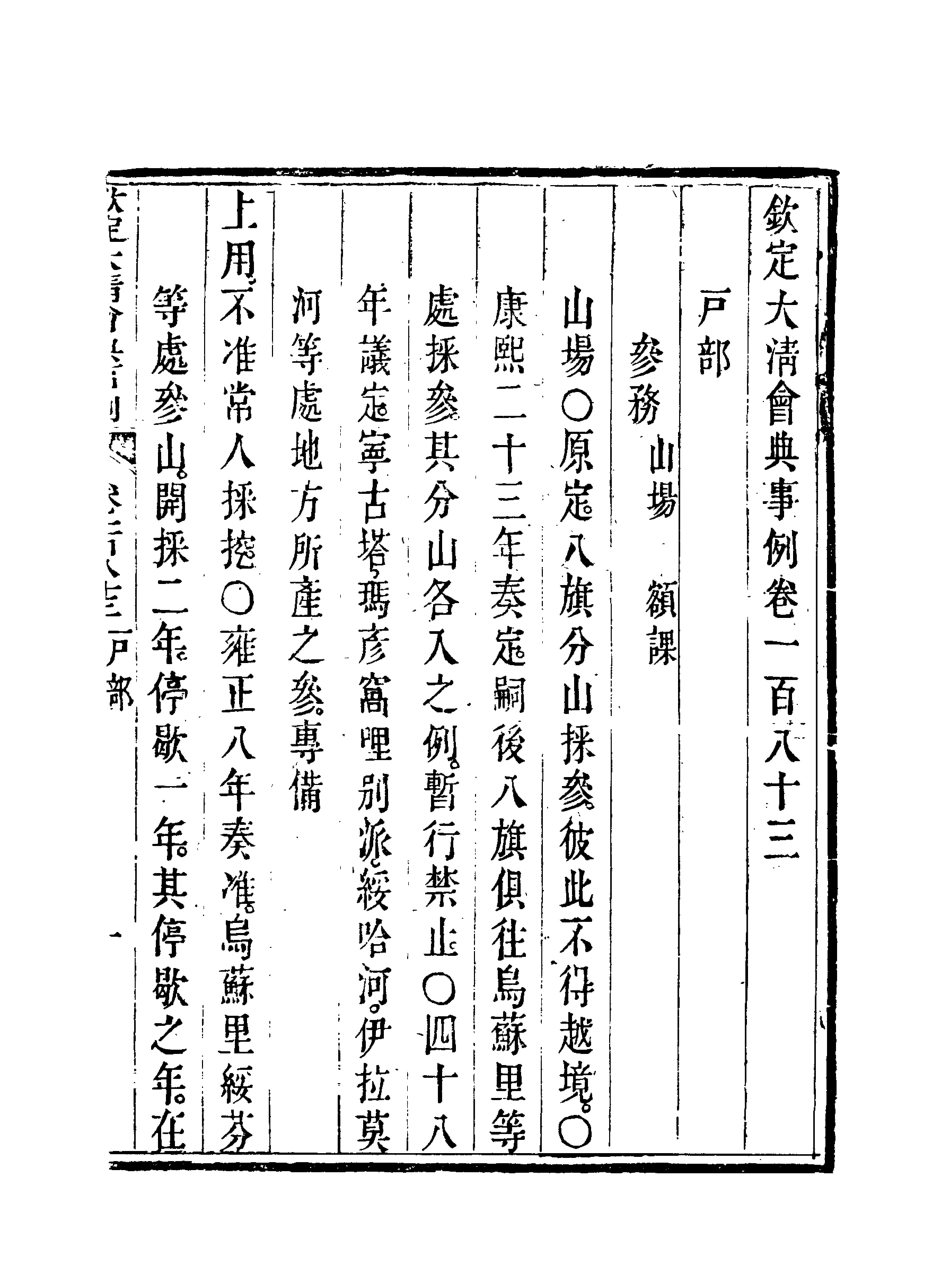 欽定大淸會典事例卷一百八十三
戸部
參務 山場 額課
山場〇原定。八旗分山採參。彼此不得越境。〇
康熙二十三年奏定。嗣後八旗俱往烏蘇里等
處採參。其分山各入之例。暫行禁止。〇四十八
年議定。寧古塔、瑪彥窩哩別派。綏哈河。伊拉莫
河等處地方所產之參。專備
上用。不准常人採挖。〇雍正八年奏准。烏蘇里綏芬
等處參山。開採二年。停歇一年。其停歇之年。在
欽定大清會典事例 戸部 一